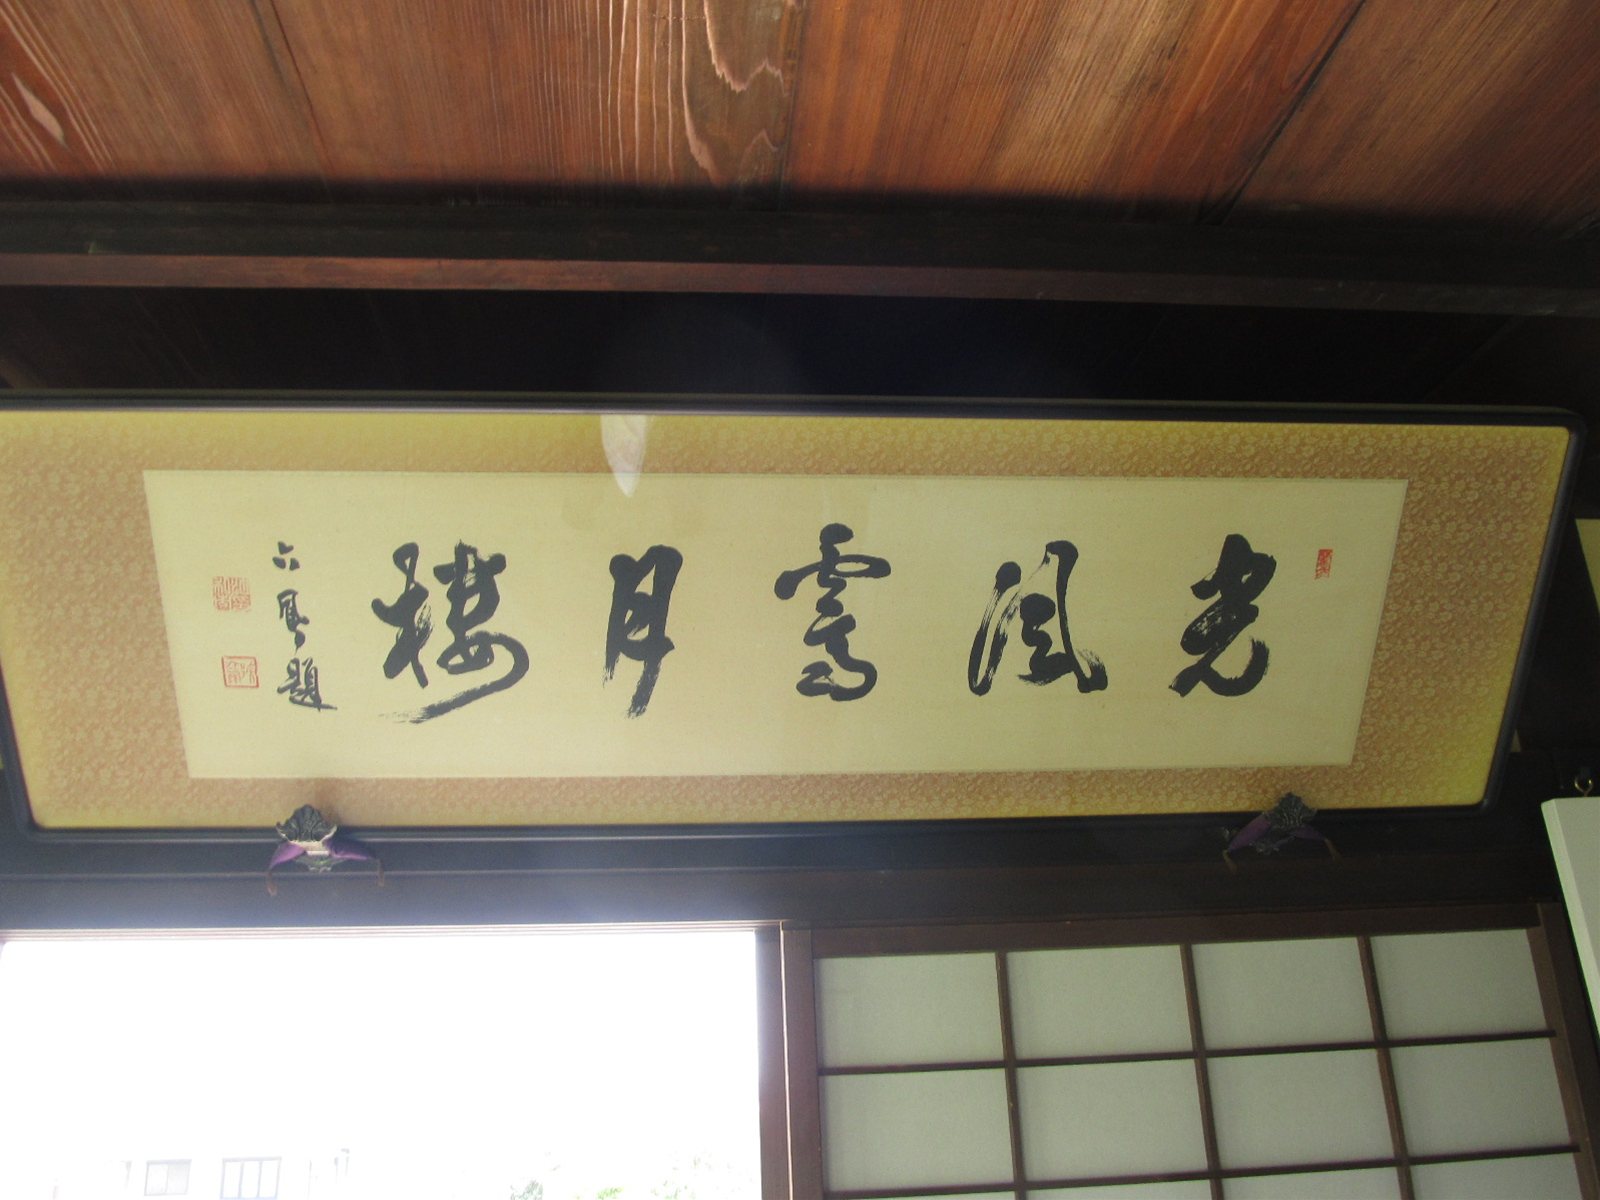 光風霽月樓
六鳳題